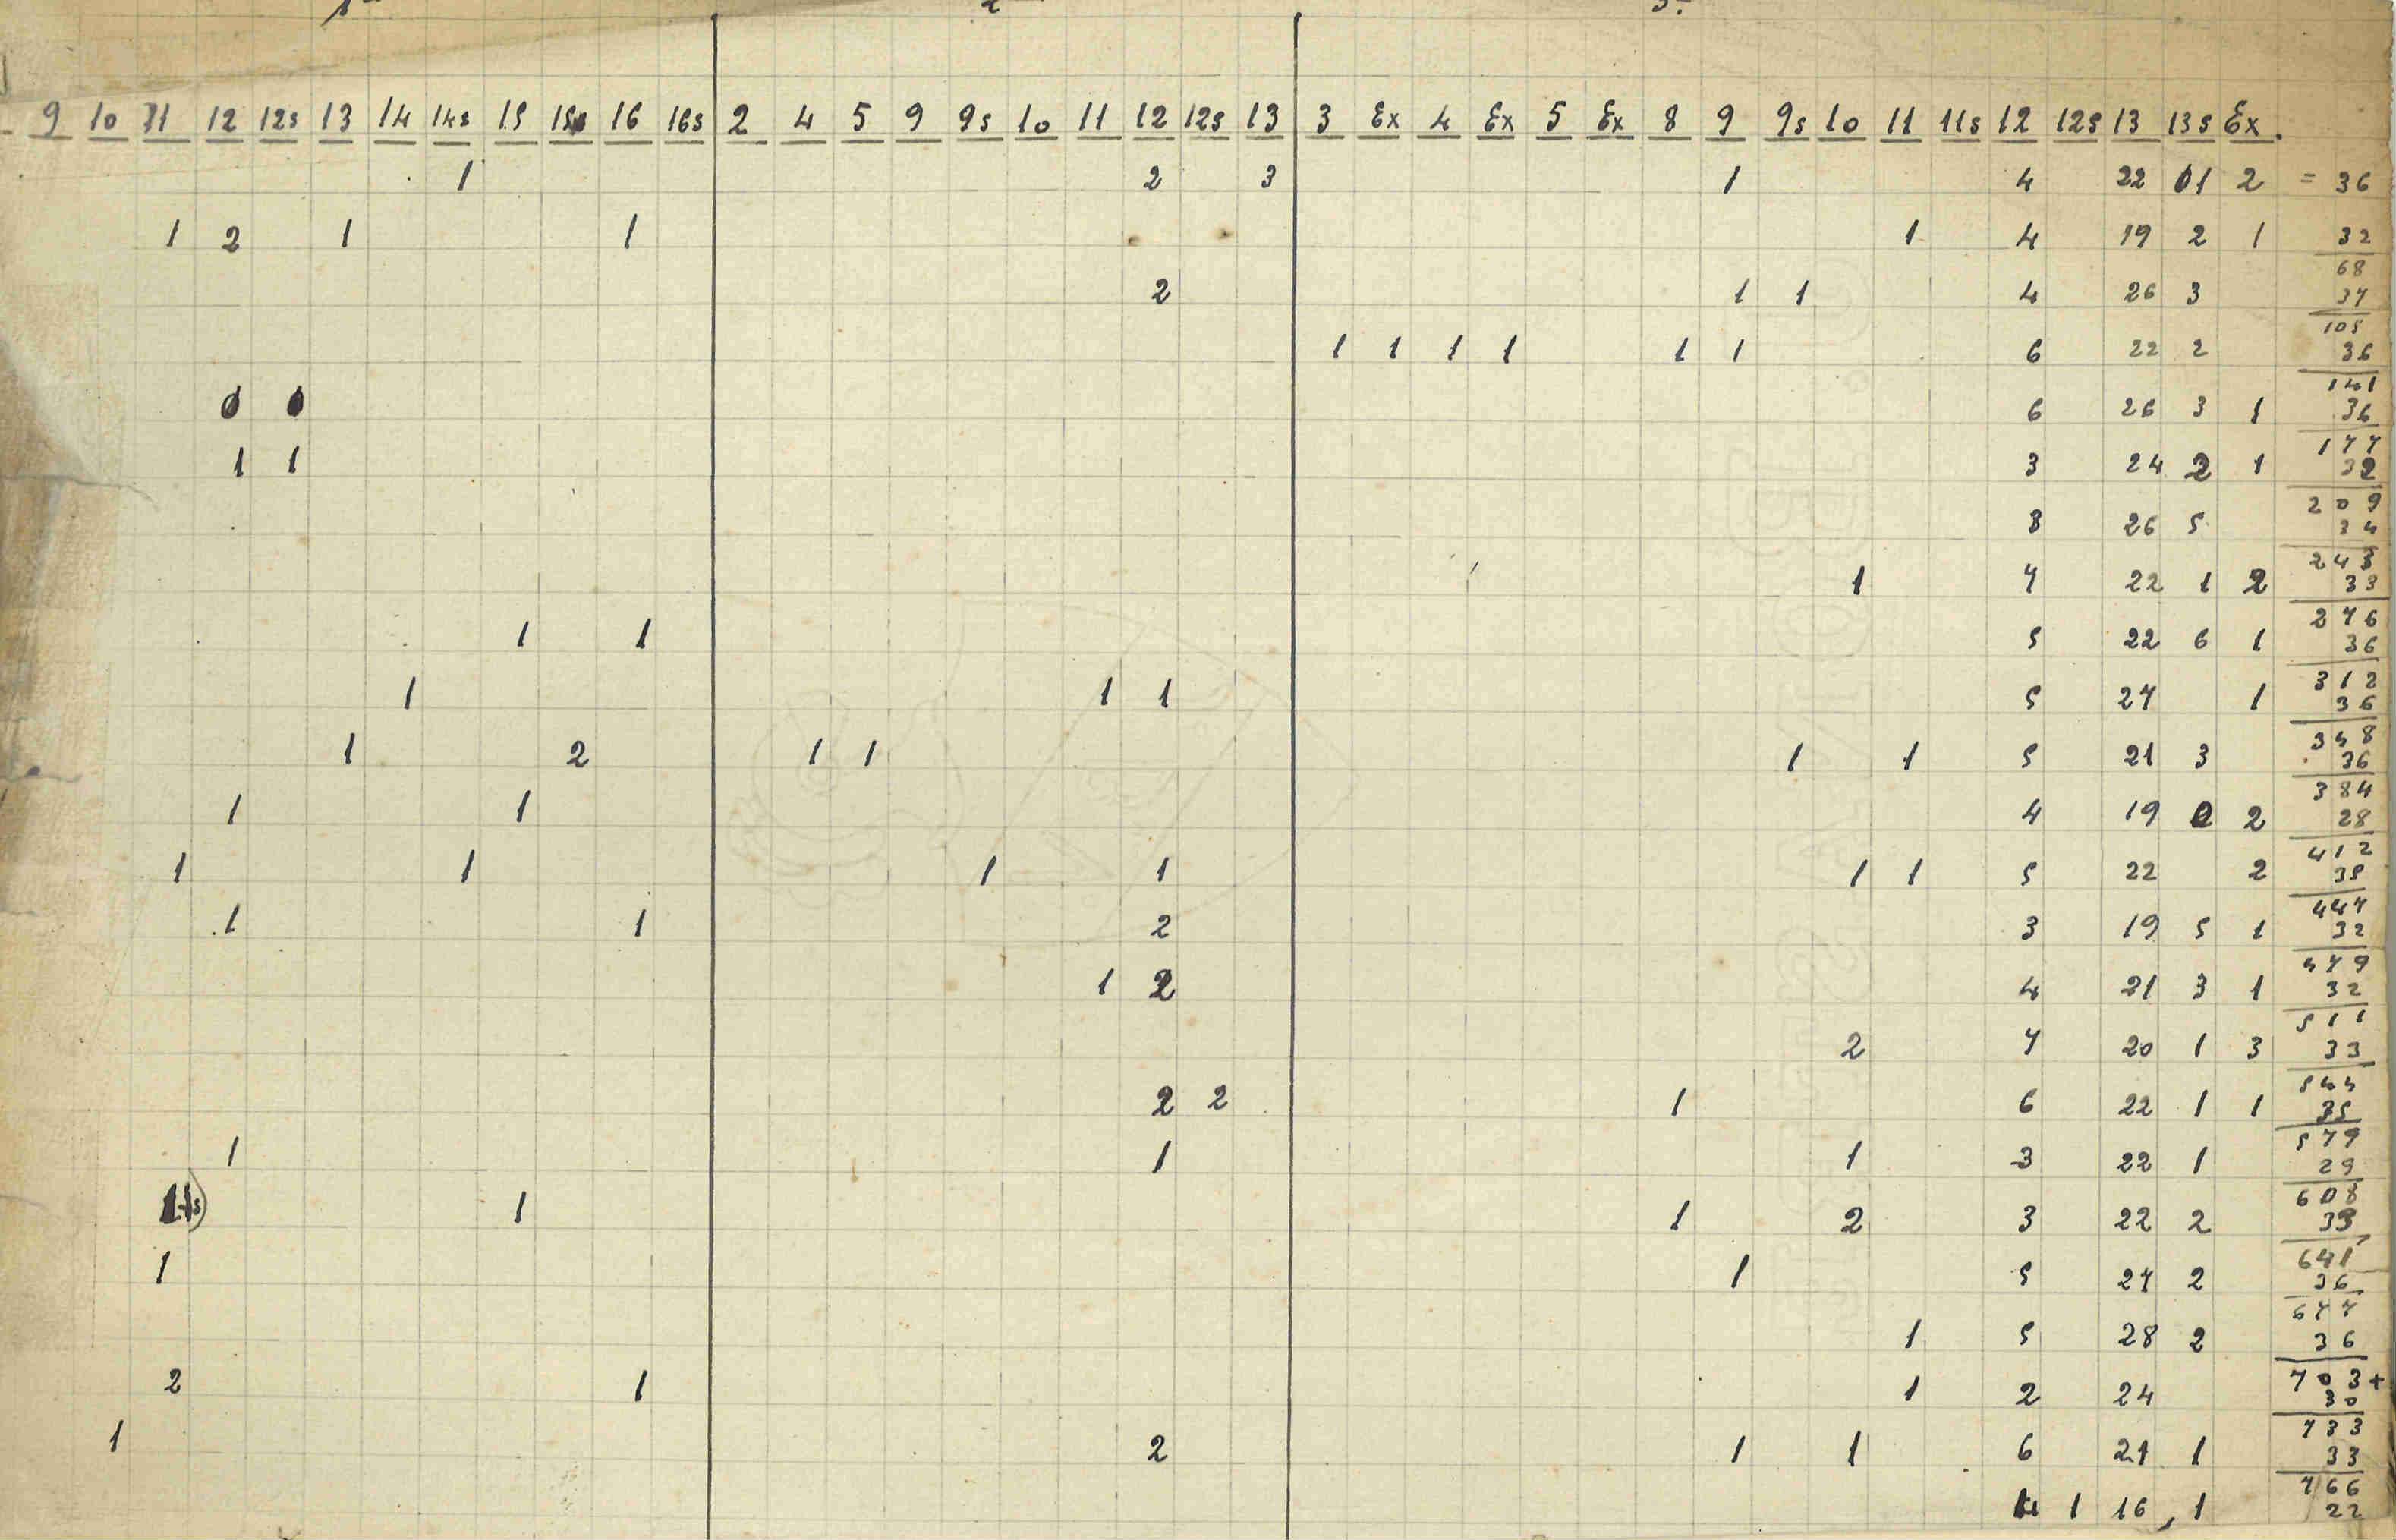 9 10 11 12 12s 13 14 14s 15 15s 16 16s 2 4 5 9 9s 10 11 12 12s 13 3 Ex 4 Ex 5 Ex 8 9 9s 10 11 11s 12 12s 13 13s Ex.
1 2 3 1 4 22 1 2 = 36
1 2 1 1 1 4 19 2 1 32
68
2 1 1 4 26 3 37
105
1 1 1 1 1 1 6 22 2 36
141
6 26 3 1 36
177
1 1 3 24 2 1 32
209
3 26 5 34
243
1 7 22 1 2 33
276
1 1 5 22 6 1 36
312
1 1 1 5 27 1 36
348
1 2 1 1 1 1 5 21 3 36
384
1 1 4 19 2 28
412
1 1 1 1 1 1 5 22 2 35
447
1 1 2 3 19 5 1 32
479
1 2 4 21 3 1 32
511
2 7 20 1 3 33
544
2 2 1 6 22 1 1 35
579
1 1 1 3 22 1 29
608
1 1 2 3 22 2 33
641
1 1 5 27 2 36
677
1 5 28 2 36
703+
2 1 1 2 24 30
733
1 2 1 1 6 21 1 33
766
1 16 1 22